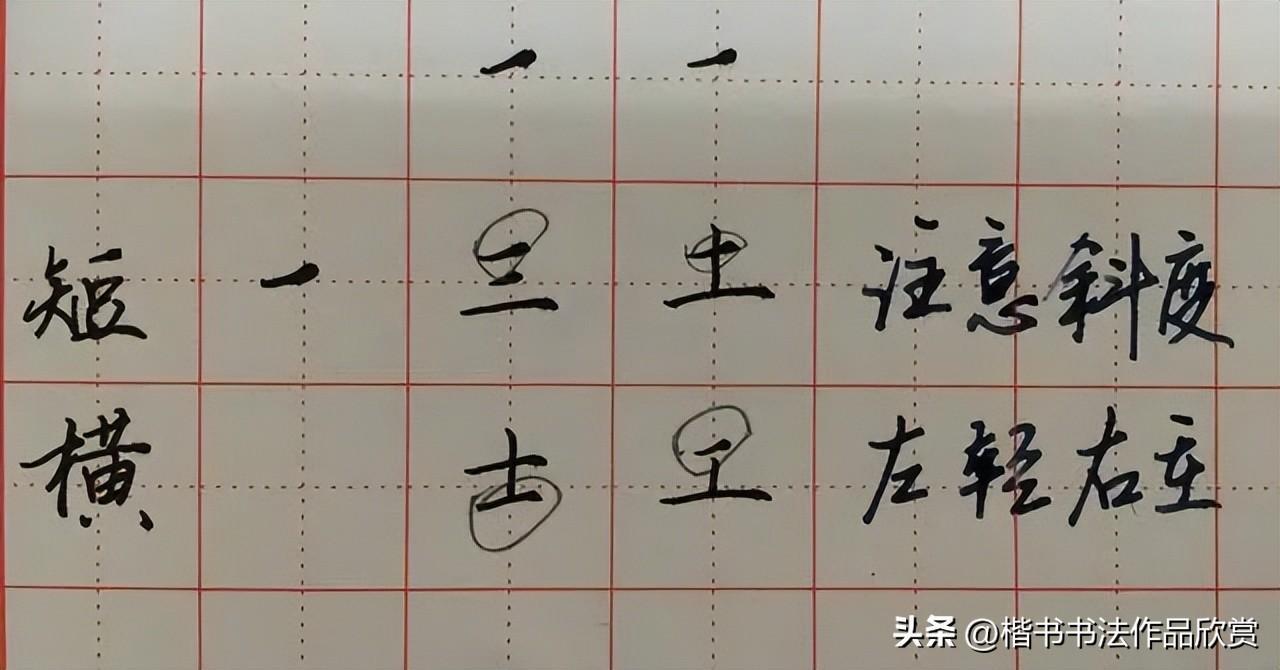 一 一
短 一 三 土 注意斜度
横 士 工 左轻右重
头条 @楷书书法作品欣赏